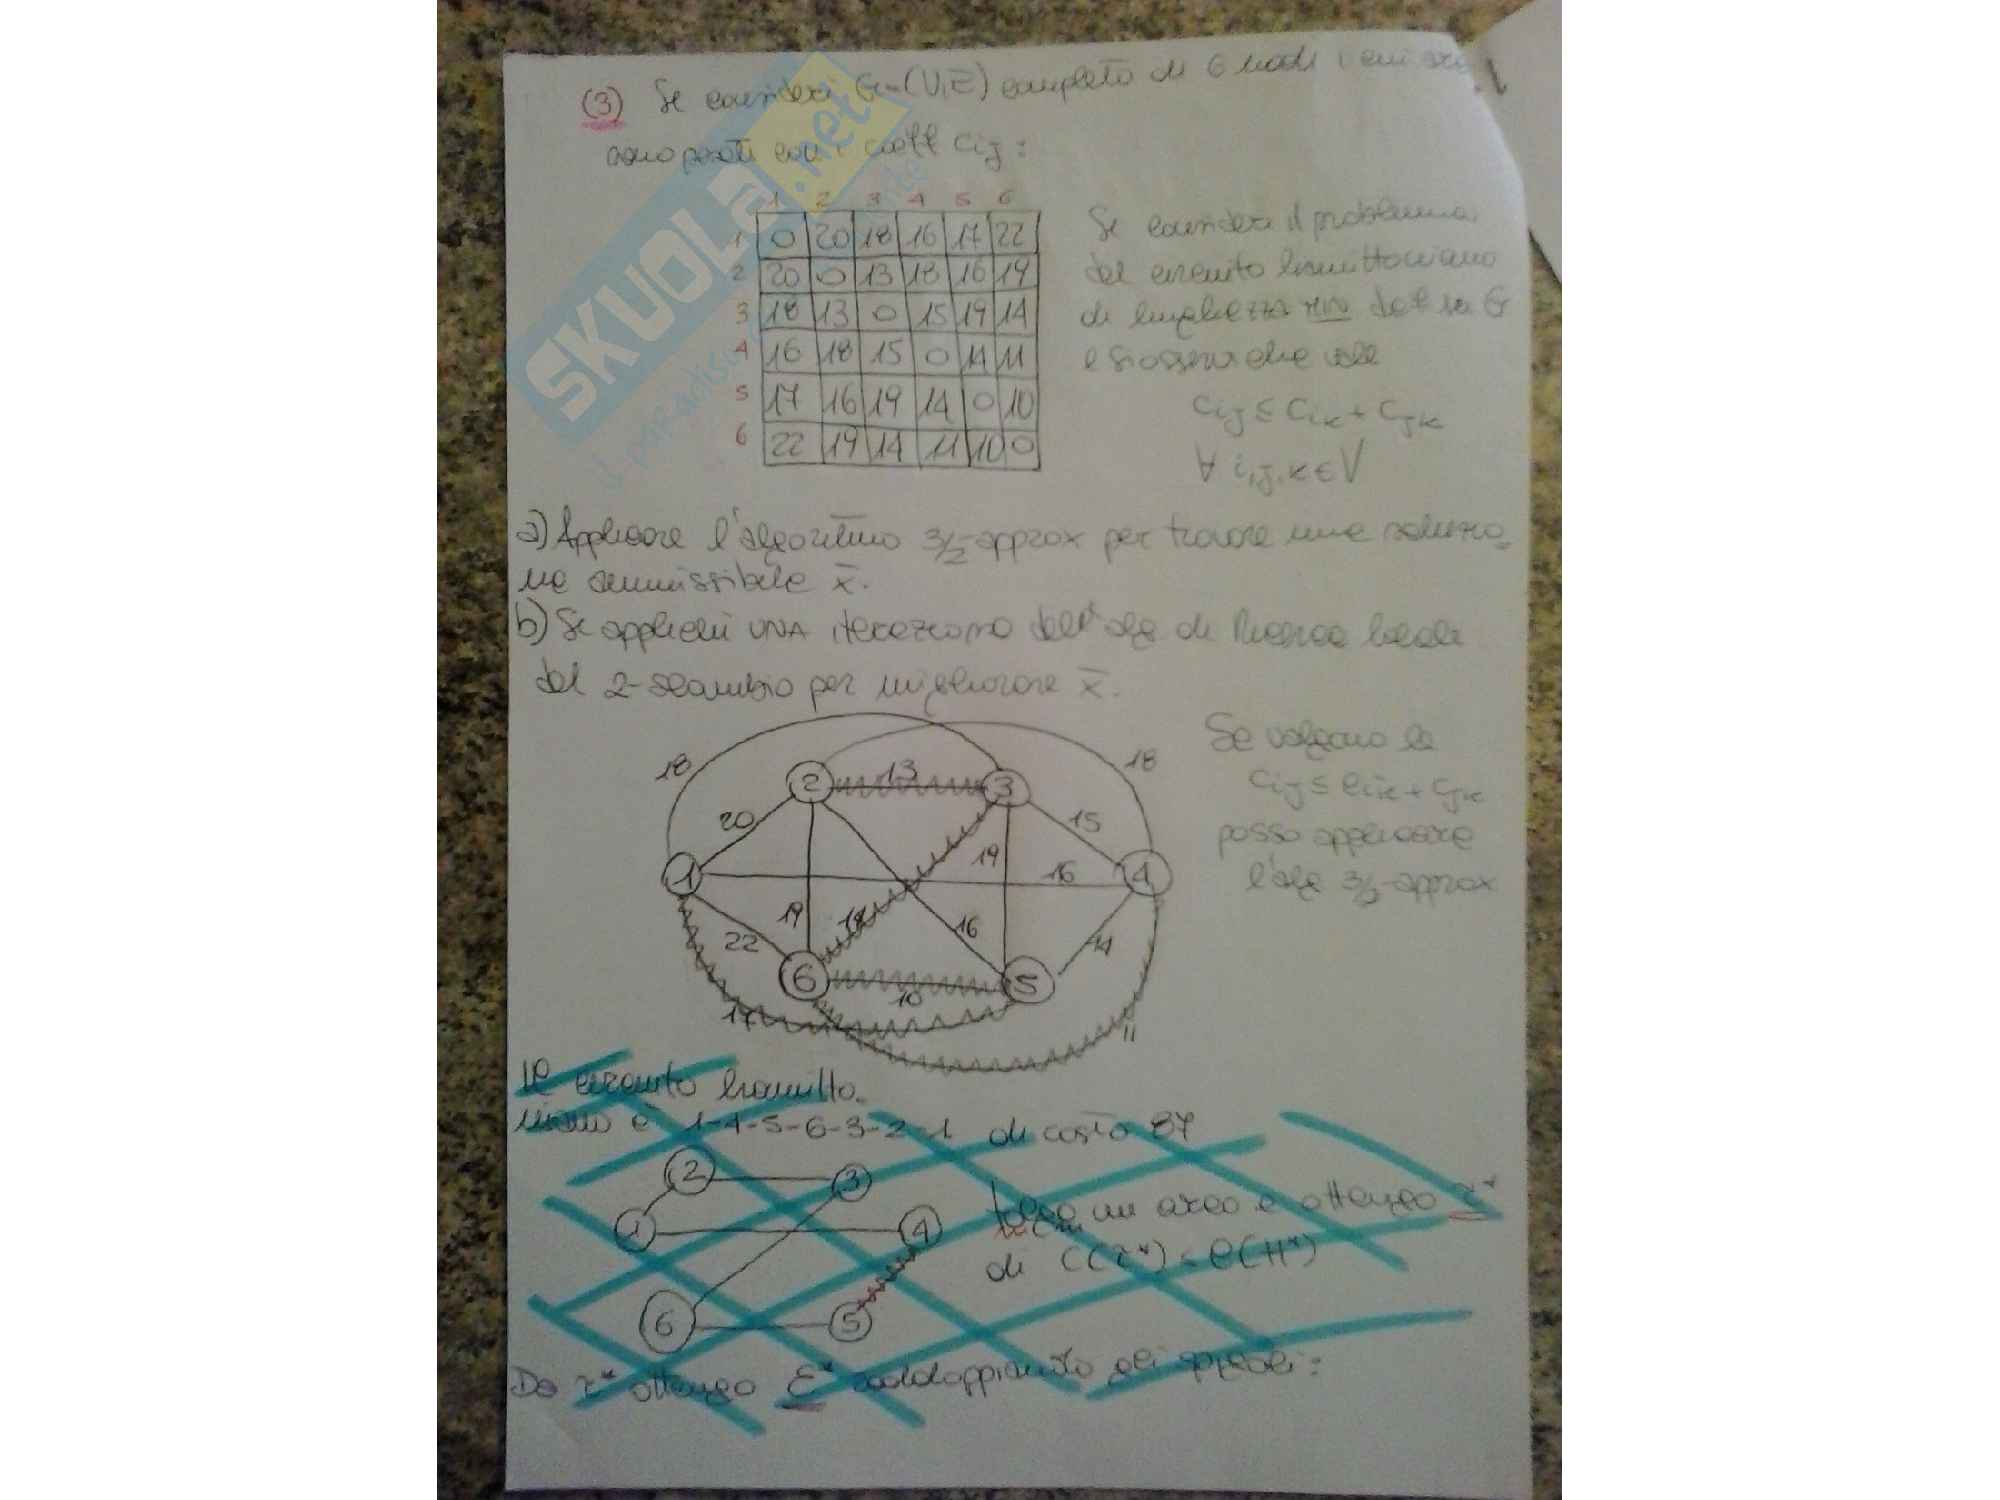 (3) Si consideri G=(V,E) completo di 6 nodi i cui
sono pesati con i coeff cij:
1 2 3 4 5 6
1 0 20 18 16 17 22
2 20 0 13 18 16 19
3 18 13 0 15 19 14
4 16 18 15 0 14 11
5 17 16 19 14 0 10
6 22 19 14 11 10 0
Si consideri il problema
del circuito hamiltoniano
di lunghezza min del su G
e si osservi che vale
cij ≤ cik + cjk
∀ i,j,k ∈ V
a) Applicare l'algoritmo 3/2-approx per trovare una soluzio
ne ammissibile x̄.
b) Si applichi UNA iterazione dell'alg di Ricerca locale
del 2-scambio per migliorare x̄.
Se valgono le
cij ≤ cik + cjk
posso applicare
l'alg 3/2-approx
18
18
2
13
3
20
15
1
19
16
4
19
14
16
22
14
6
10
5
17
11
Il circuito hamilto-
niano è 1-4-5-6-3-2-1 di costo 87
2 3
1 4
6 5
tolgo un arco e ottengo τ*
di C(τ*) ≤ C(H*)
Da τ* ottengo E* raddoppiando gli spigoli:
SKUOLA.net
il paradiso